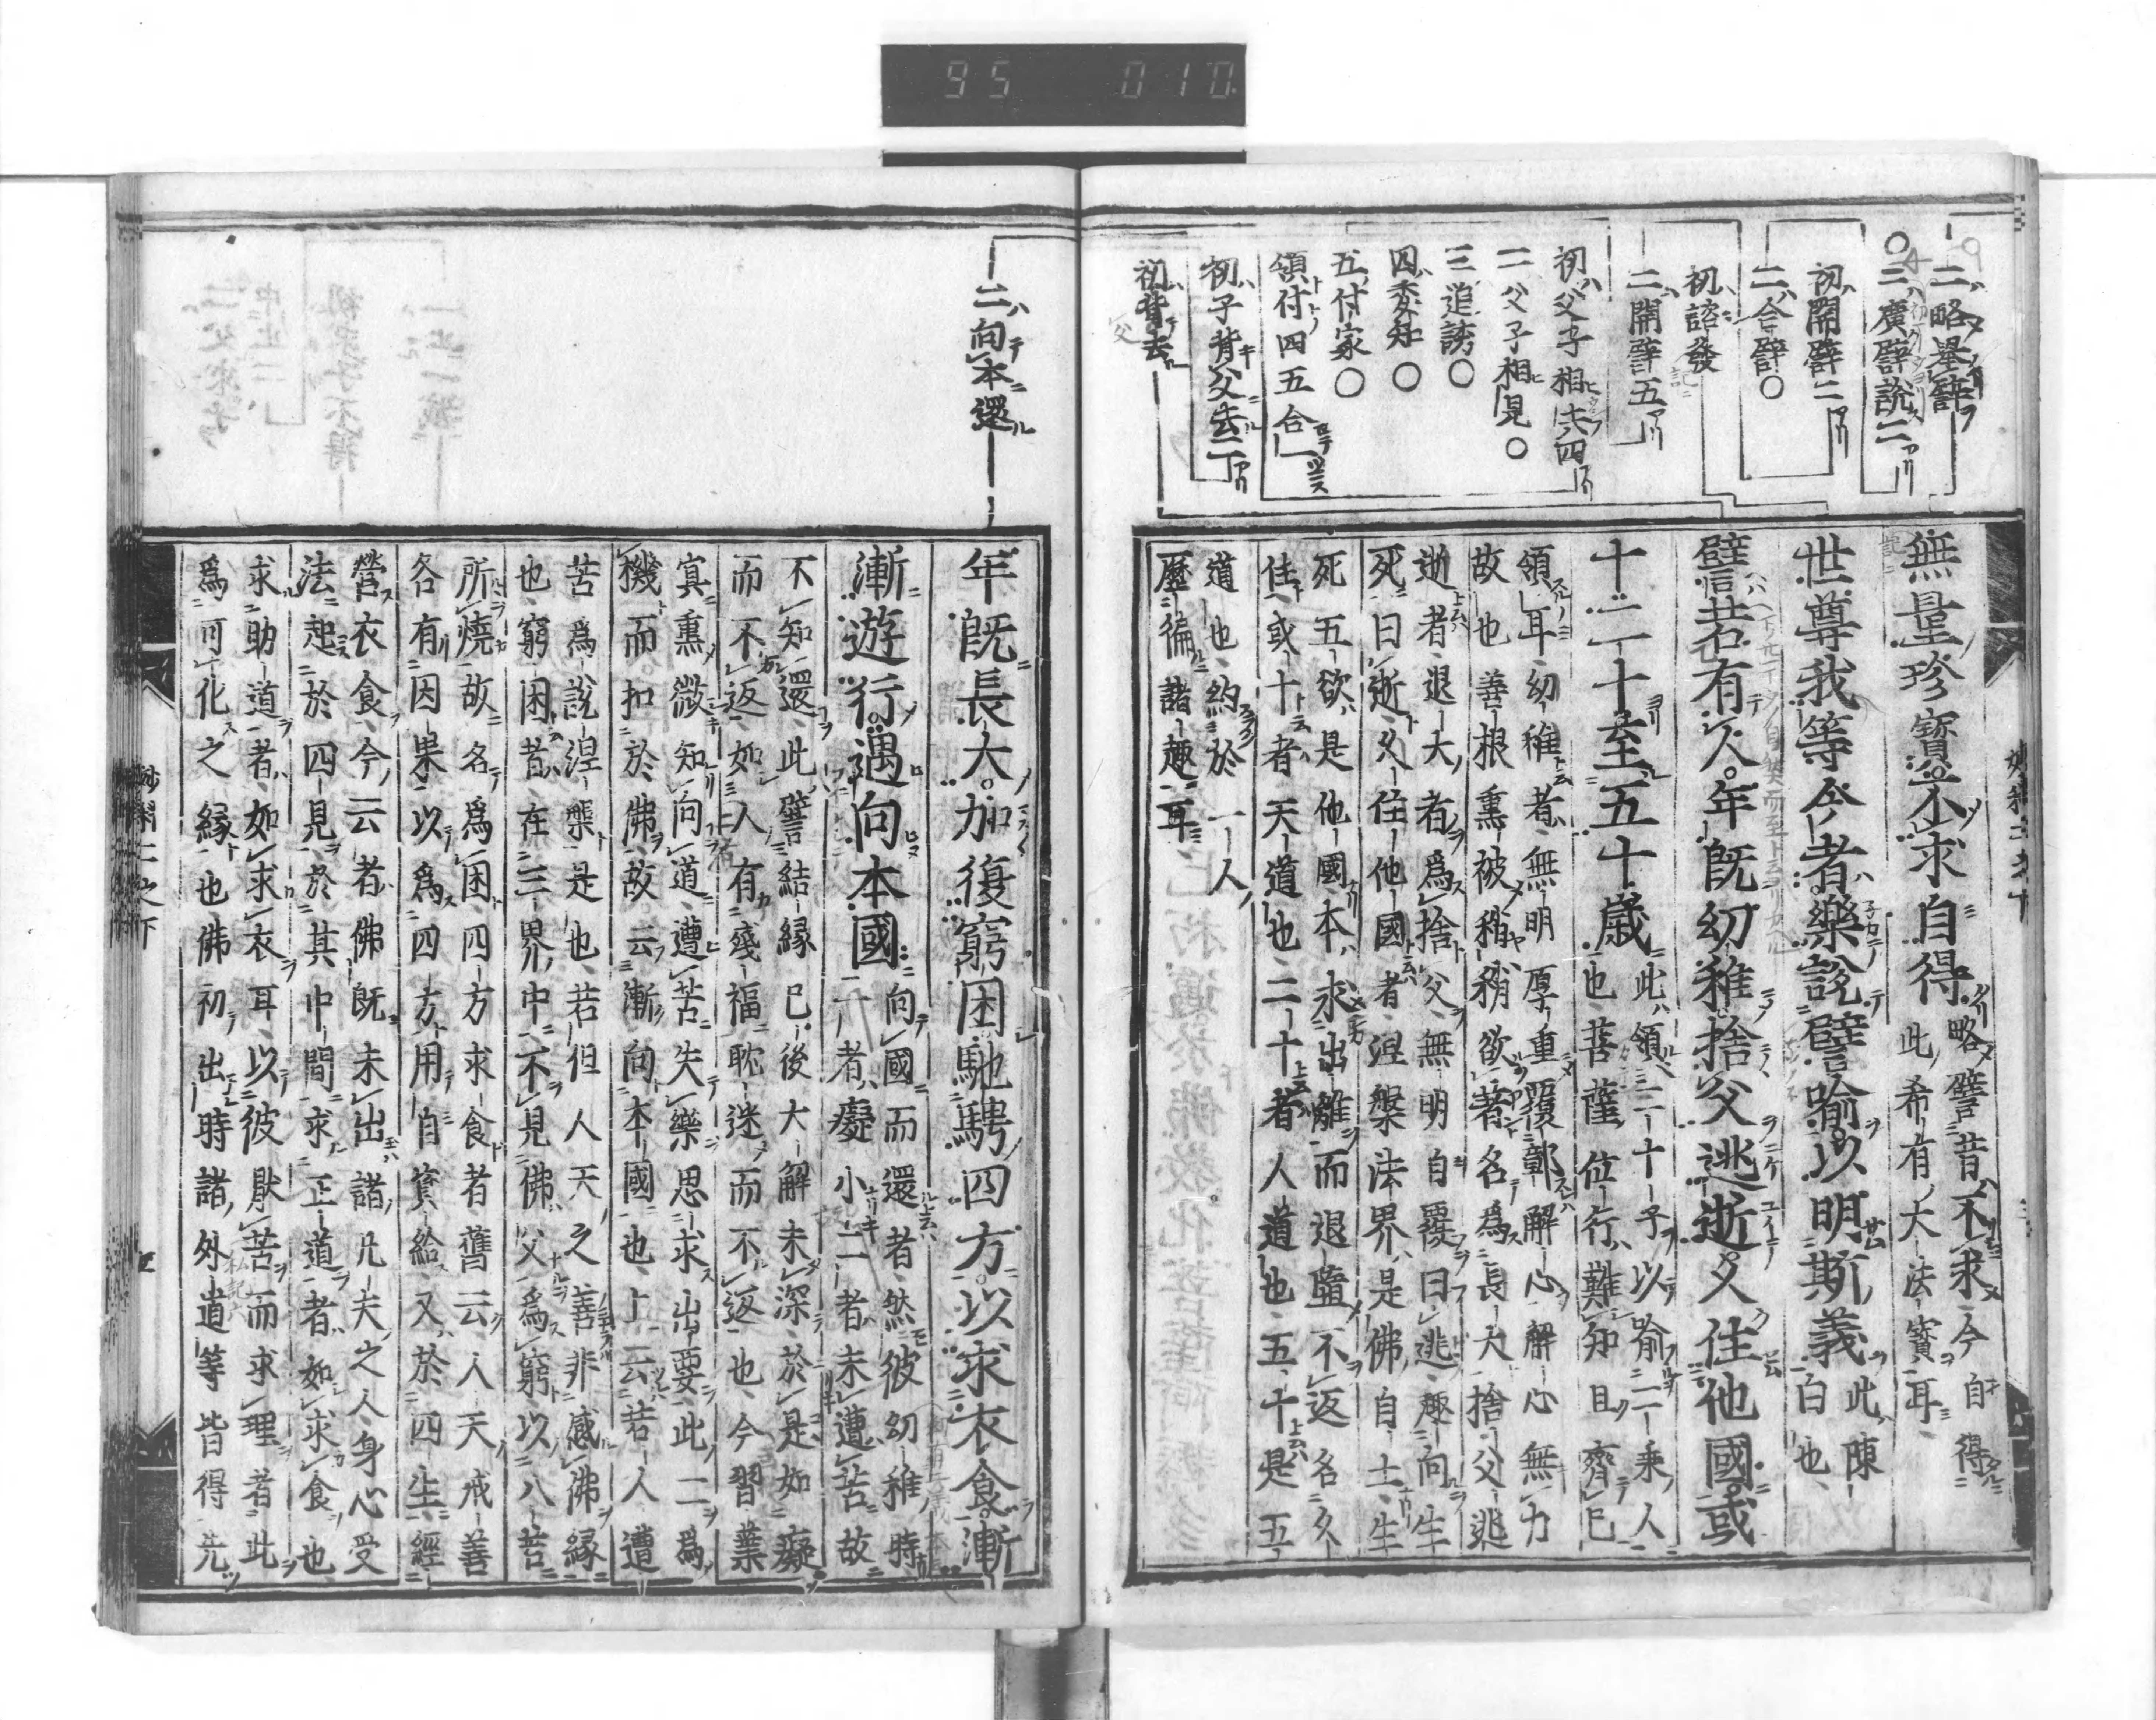 95 010
二略舉譬
○二廣譬說二
初開譬二
二合譬○
初諮發
二開譬五
初父子相失四
二父子相見○
三追誘○
四委知○
五付家○
領付四五合
初子背父去二
初背去
無量珍寶不求自得略譬昔不求今自得
此希有大法寶耳
世尊我等今者樂說譬喻以明斯義此陳
白也
譬若有人年既幼稚捨父逃逝久住他國或
十二十至五十歲此領三十子以喻二乘人
也菩薩位行難知且齊已
領耳幼稚者無明厚重覆鄣解心解心無力
故也善根熏被稍稍欲著名為長大捨父逃
逝者退大者為捨父無明自覆曰逃趣向生
死曰逝久住他國者涅槃法界是佛自土生
死五欲是他國本求出離而退墮不返名久
住或十者天道也二十者人道也五十是五
道也約於一人
歷徧諸趣耳
二向本還
年既長大加復窮困馳騁四方以求衣食漸
漸遊行遇向本國向國而還者然彼幼稚時
一者癡小二者未遭苦故
不知還此譬結緣已後大解未深於是如癡
而不返如人有殘福耽迷而不返也今習業
冥熏微知向道遭苦失樂思求出要此二為
機而扣於佛故云漸向本國也上云若人遭
苦為說涅槃是也若但人天之善非感佛緣
也窮困者在三界中不見佛父為窮以八苦
所燒故名為困四方求食者舊云人天戒善
各有因果以為四方用自資給又於四生經
營衣食今云者佛既未出諸凡夫之人身心受
法起於四見於其中間求正道者如求食也
求助道者如求衣耳以彼厭苦而求理者此
為可化之緣也佛初出時諸外道等皆得先